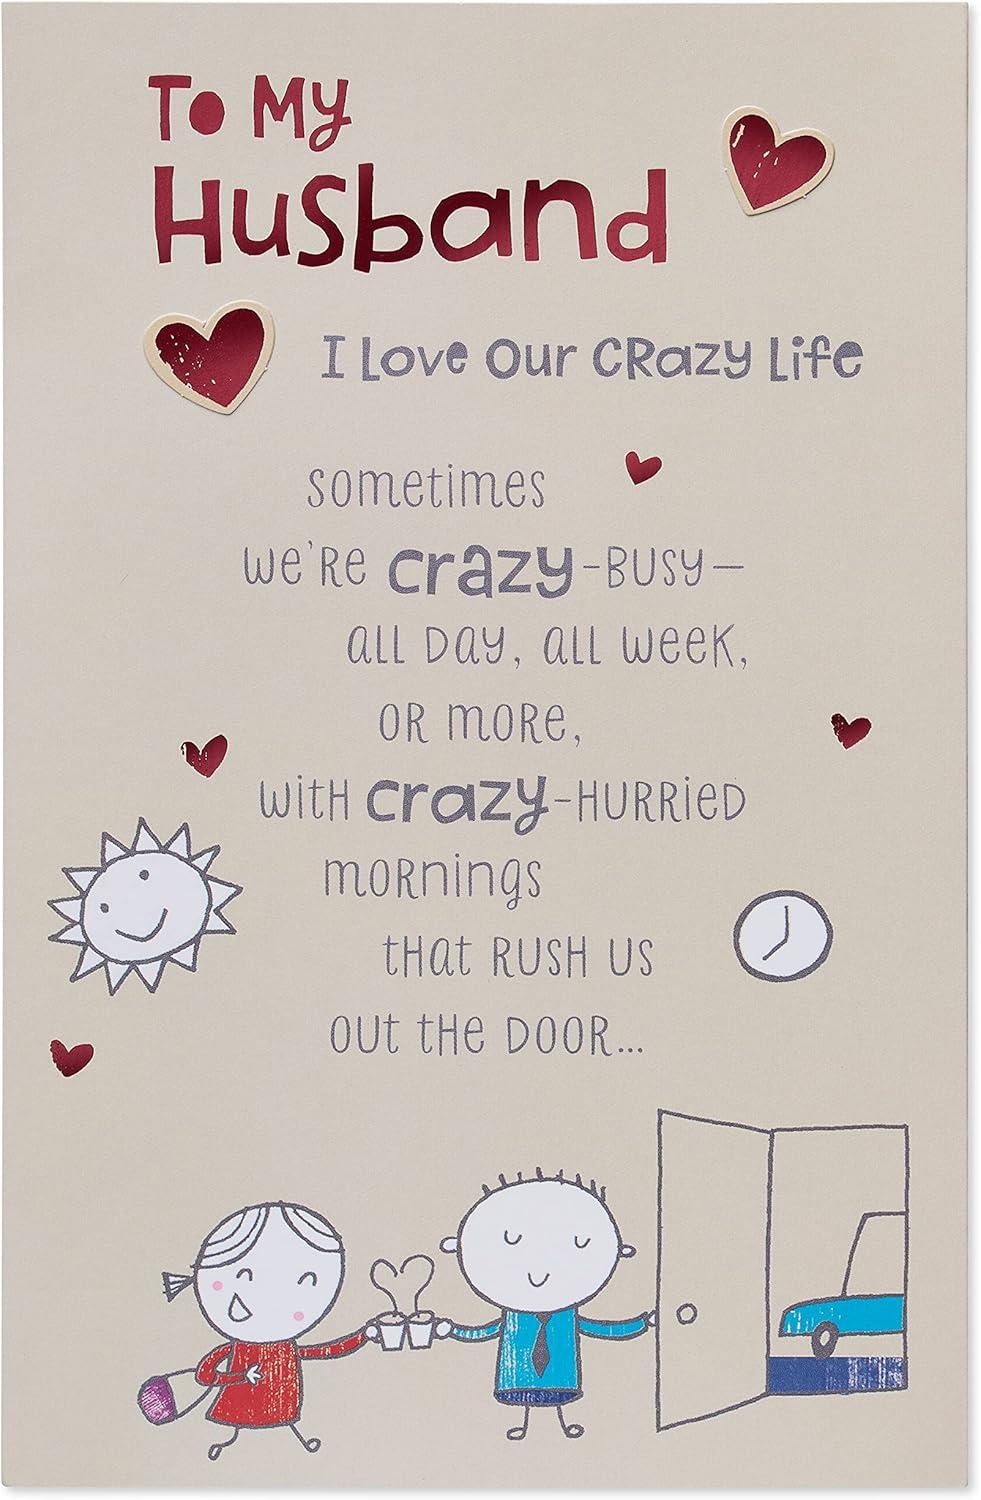 To My
Husband
I Love Our Crazy Life
sometimes
we're crazy-busy—
all day, all week,
or more,
with crazy-hurried
mornings
that rush us
out the door...